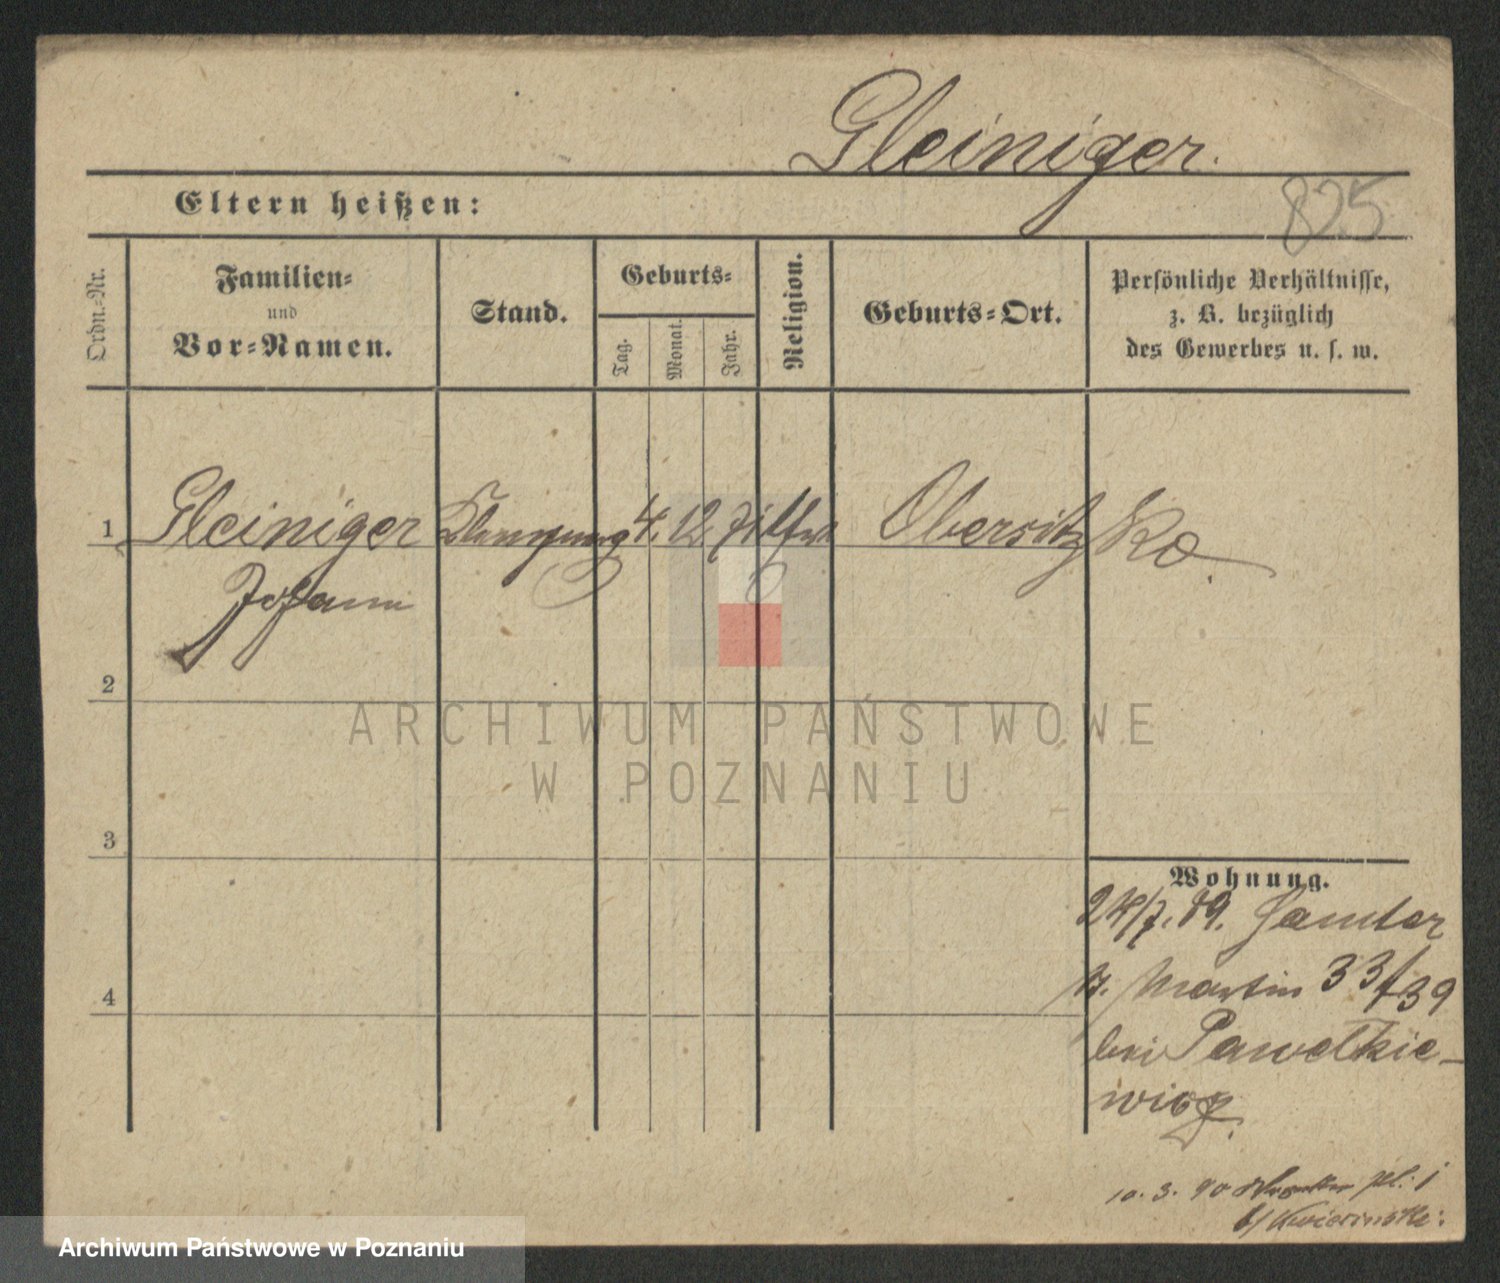 Gleiniger.
825
Eltern heißen:
Ordn.-Nr.
Familien-
und
Vor-Namen.
Stand.
Geburts-
Tag.
Monat.
Jahr.
Religion.
Geburts-Ort.
Persönliche Verhältnisse,
z. B. bezüglich
des Gewerbes u. s. w.
1 Gleiniger 4. 12. Obersitzko.
Johann
2
ARCHIWUM PAŃSTWOWE
W POZNANIU
3
Wohnung.
24/7. 89. Samter
St. Martin 33/39
bei Pawelkie-
wicz.
4
10. 3. 90 pl. 1
b/ Kwiecinski.
Archiwum Państwowe w Poznaniu